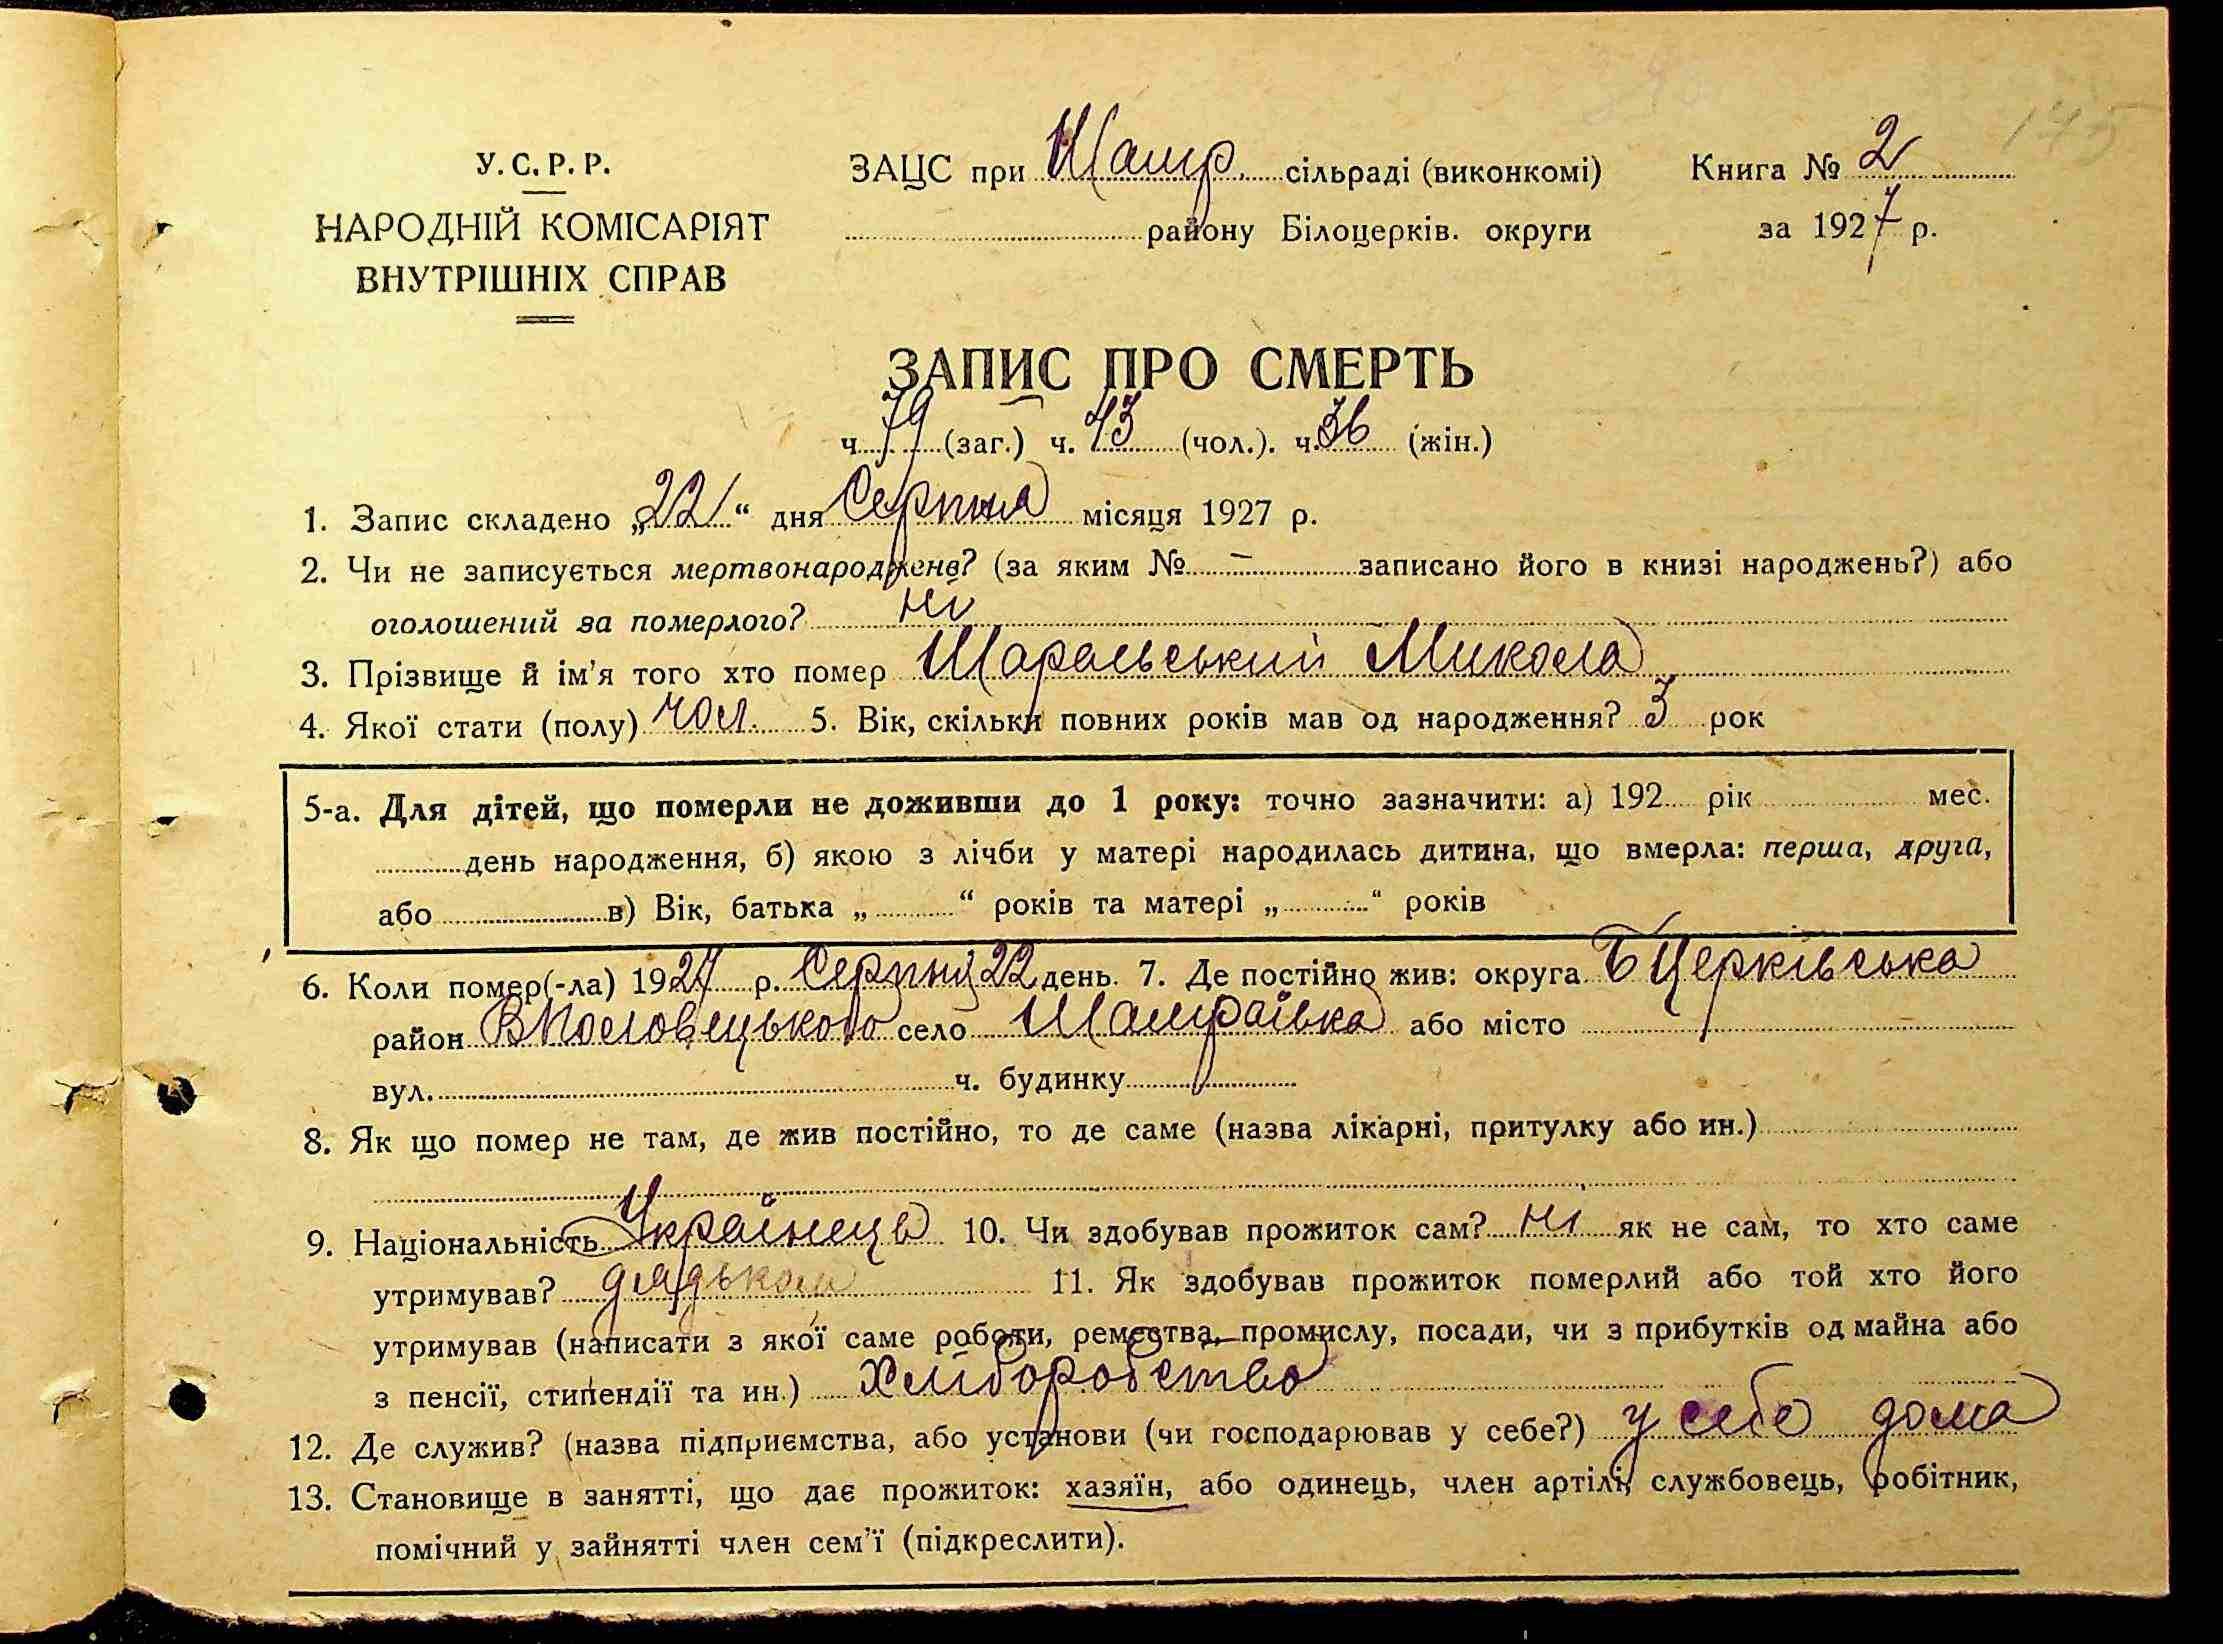 145
У.С.Р.Р.
НАРОДНІЙ КОМІСАРІЯТ
ВНУТРІШНІХ СПРАВ
ЗАЦС при Шамр. сільраді (виконкомі)
району Білоцерків. округи
Книга № 2
за 1927 р.
ЗАПИС ПРО СМЕРТЬ
ч. 79 (заг.) ч. 43 (чол.). ч. 36 (жін.)
1. Запис складено „22“ дня Серпня місяця 1927 р.
2. Чи не записується мертвонароджене? (за яким № – записано його в книзі народжень?) або
оголошений за померлого? ні
3. Прізвище й ім'я того хто помер Шаральський Микола
4. Якої стати (полу) чол. 5. Вік, скільки повних років мав од народження? 3 рок
5-а. Для дітей, що померли не доживши до 1 року: точно зазначити: а) 192 рік мес.
день народження, б) якою з лічби у матері народилась дитина, що вмерла: перша, друга,
або в) Вік, батька „ “ років та матері „ “ років
6. Коли помер(-ла) 1927 р. Серпня 22 день. 7. Де постійно жив: округа БЦерківська
район ВПоловецького село Шамраївка або місто
вул. ч. будинку
8. Як що помер не там, де жив постійно, то де саме (назва лікарні, притулку або ин.)
9. Національність Українець 10. Чи здобував прожиток сам? ні як не сам, то хто саме
утримував? дядько 11. Як здобував прожиток померлий або той хто його
утримував (написати з якої саме роботи, ремества, промислу, посади, чи з прибутків од майна або
з пенсії, стипендії та ин.) Хліборобство
12. Де служив? (назва підприємства, або установи (чи господарював у себе?) у себе дома
13. Становище в занятті, що дає прожиток: хазяїн, або одинець, член артілі, службовець, робітник,
помічний у зайнятті член сем'ї (підкреслити).